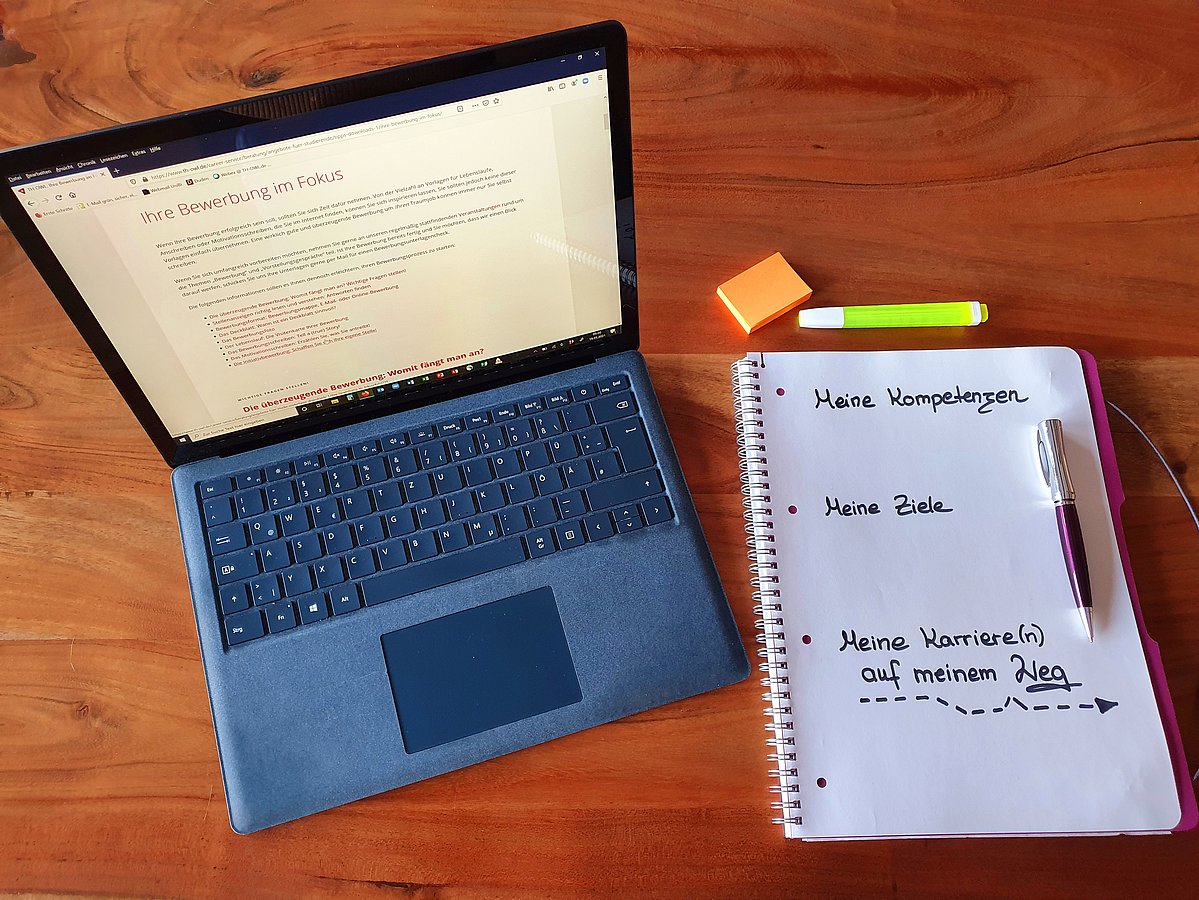 Datei Bearbeiten Ansicht Chronik Lesezeichen Extras Hilfe
TH OWL: Ihre Bewerbung im
https://www.th-owl.de/career-service/beratung/angebote-fuer-studierende/tipps-downloads-1/ihre-bewerbung-im-fokus/
Erste Schritte E-Mail grün, sicher,
Webmail UniBi Duden Weber @ TH-OWL.de
Ihre Bewerbung im Fokus
Wenn Ihre Bewerbung erfolgreich sein soll, sollten Sie sich Zeit dafür nehmen. Von der Vielzahl an Vorlagen für Lebensläufe,
Anschreiben oder Motivationsschreiben, die Sie im Internet finden, können Sie sich inspirieren lassen, Sie sollten jedoch keine dieser
Vorlagen einfach übernehmen. Eine wirklich gute und überzeugende Bewerbung um Ihren Traumjob können immer nur Sie selbst
schreiben.
Wenn Sie sich umfangreich vorbereiten möchten, nehmen Sie gerne an unseren regelmäßig stattfindenden Veranstaltungen rund um
die Themen „Bewerbung" und „Vorstellungsgespräche" teil. Ist Ihre Bewerbung bereits fertig und Sie möchten, dass wir einen Blick
darauf werfen, schicken Sie uns Ihre Unterlagen gerne per Mail für einen Bewerbungsunterlagencheck.
Die folgenden Informationen sollen es Ihnen dennoch erleichtern, Ihren Bewerbungsprozess zu starten:
Die überzeugende Bewerbung: Womit fängt man an? Wichtige Fragen stellen!
Stellenanzeigen richtig lesen und verstehen: Antworten finden
Bewerbungsformat: Bewerbungsmappe, E-Mail- oder Online-Bewerbung
Das Deckblatt: Wann ist ein Deckblatt sinnvoll?
Das Bewerbungsfoto
Der Lebenslauf: Die Visitenkarte Ihrer Bewerbung
Das Bewerbungsschreiben: Tell a (true) Story!
Das Motivationsschreiben: Erzählen Sie, was Sie antreibt!
Die Initiativbewerbung: Schaffen Sie sich Ihre eigene Stelle!
WICHTIGE FRAGEN STELLEN!
Die überzeugende Bewerbung: Womit fängt man an?
Zur Suche Text hier eingeben
Meine Kompetenzen
Meine Ziele
Meine Karriere(n)
auf meinem Weg
Esc Druck Pos1 Ende Bild Bild Einfg Entf
Q W E R T Z U I O P Ü
A S D F G H J K L Ö Ä
Y X C V B N M
Strg Fn Alt Alt Gr